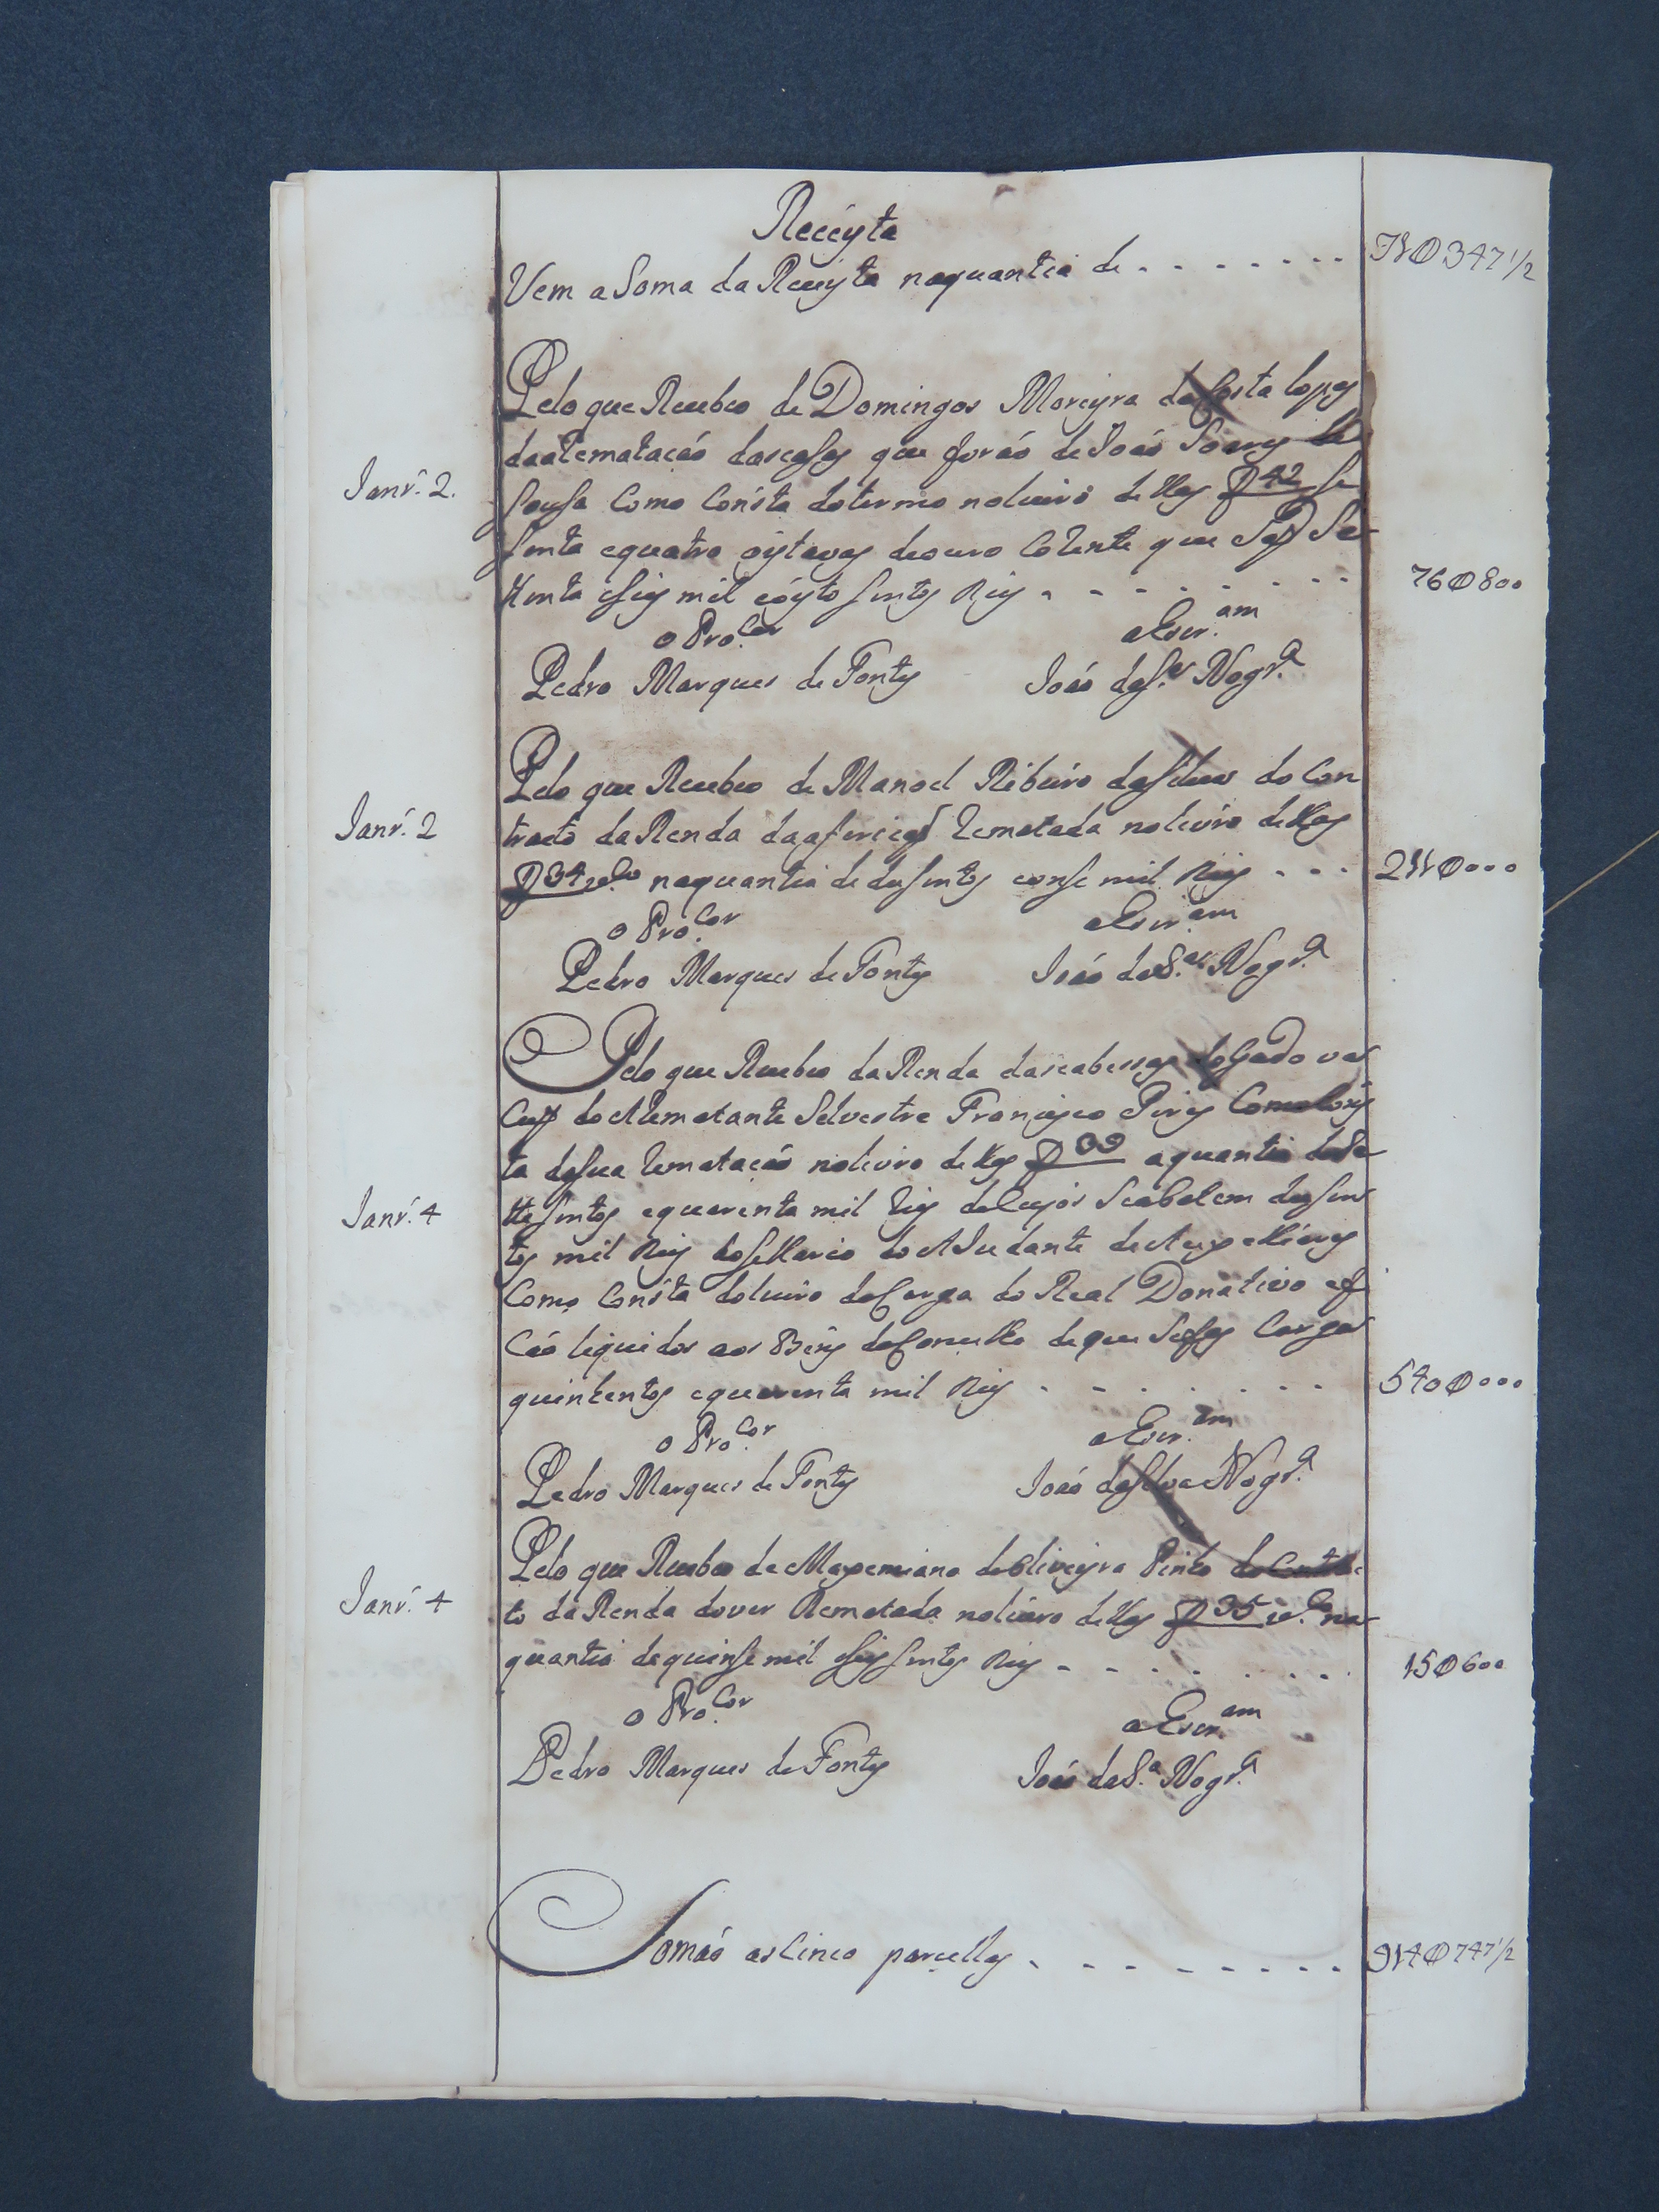 Receyta
Vem a Soma da Receyta naquantia de - - - - - - - - 71$347 1/2
Pelo que Recebeo de Domingos Moreyra da Costa lopes
daaRematacaó dascasas que foraó de Ioaó Soares de
Janr.º 2.
Sousa Como Consta dotermo nolivro dellas f 42 se
senta equatro oytavas deouro Cobente que Saó Se
ttenta eseis mil eóyto sentos Reis - - - - - - - - 76$800
o Pro.cor oEscr.am
Pedro Marques de Fontes Ioaó daS.ª Nogr.ª
Pelo que Recebeo de Manoel Ribeiro da Silva do Con
Janr.º 2
tracto da Renda daaferiçaó Rematada nolivro dellas
f 34 naquantia de dusentos eonse mil Reis - - - 211$000
o Pro.cor oEscr.am
Pedro Marques de Fontes Ioaó da S.ª Nogr.ª
Pelo que Recebeo da Renda dascabessas do Gado va
Cum do ARematante Selvestre Francisco Pires Como Cons
ta desua Rematacaó nolivro dellas f 39 aquantia de Se
Janr.º 4
tte sentos equarenta mil Reis deCujos Seabatem dusen
tos mil Reis do sellario do AIudante
Como Consta dolivro daCarga do Real Donativo ef
Caó liquidos aos Bens doConcelho de que Sefas Carga
quinhentos equarenta mil Reis - - - - - - - 540$000
o Pro.cor oEscr.am
Pedro Marques de Fontes Ioaó da Silva Nogr.ª
Pelo que Recebeo de Maxemiano deOliveyra Pinto do Contrac
Janr.º 4
to da Renda dover Rematada nolivro dellas f 35 na
quantia dequinse mil seis sentos Reis - - - - - - - 15$600
o Pro.cor oEscr.am
Pedro Marques de Fontes Ioaó daS.ª Nogr.ª
Somaó asCinco parcellas - - - - - - - - - 914$747 1/2